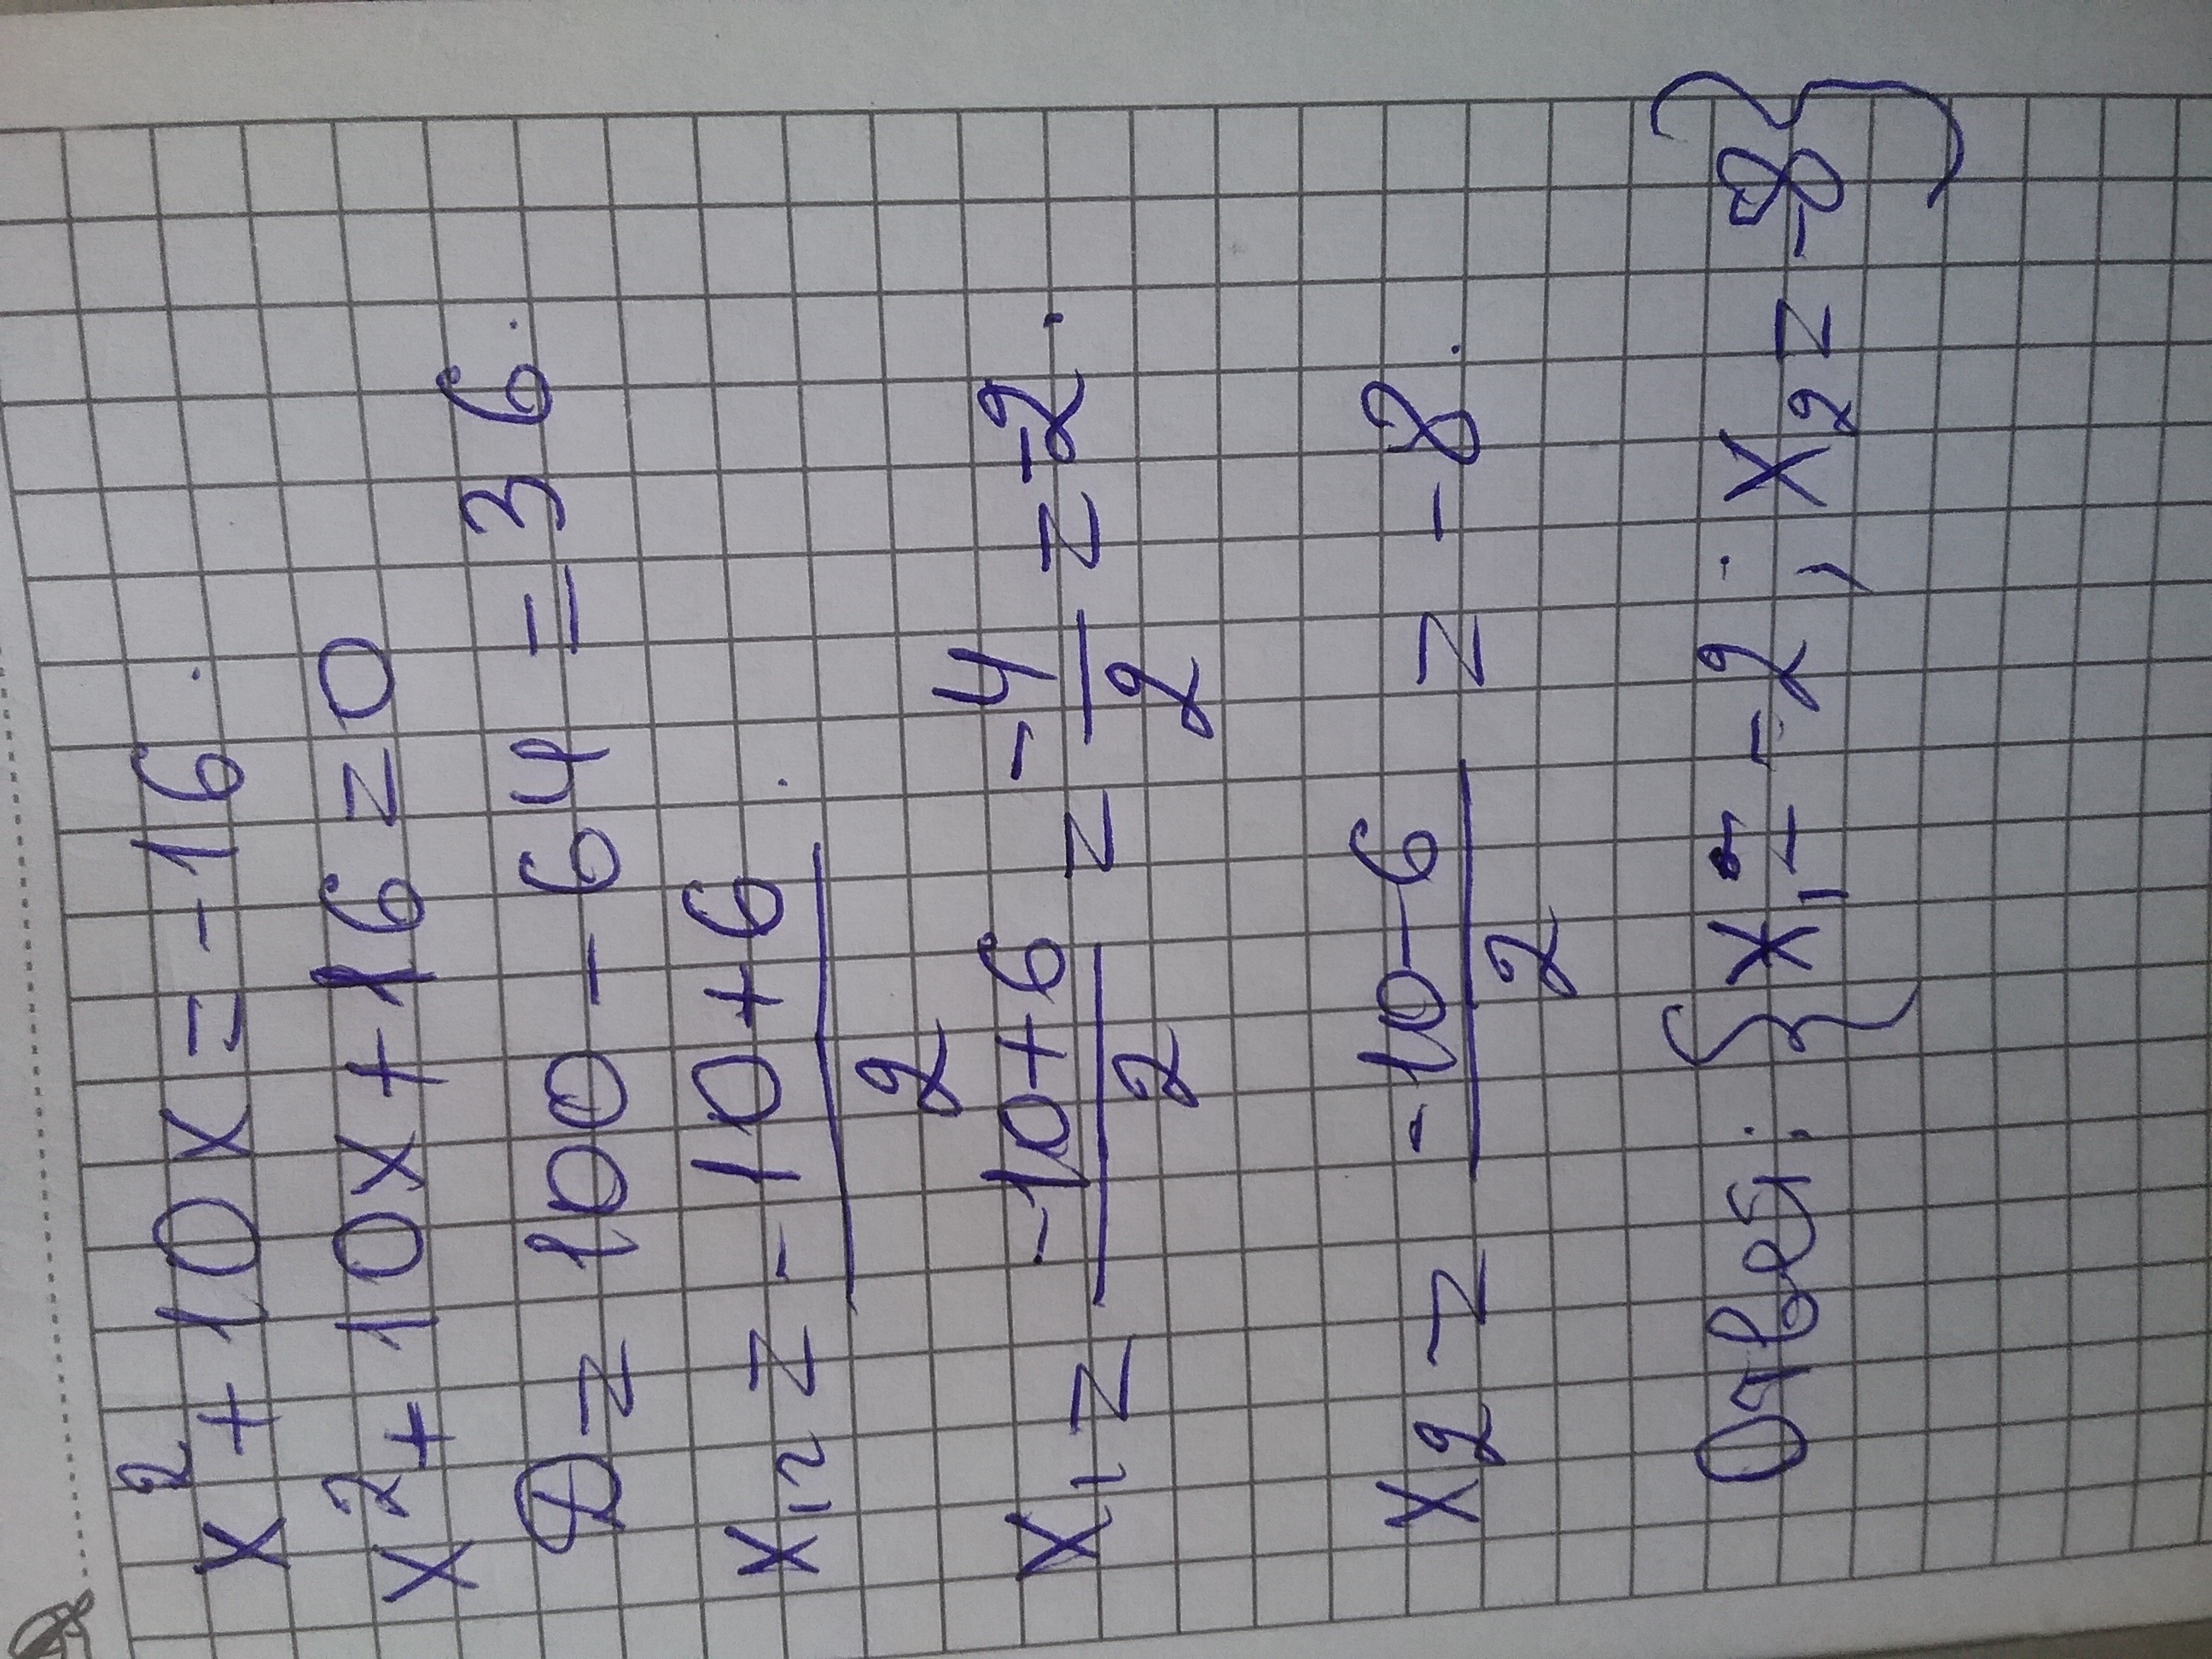 x² + 10x = -16.
x² + 10x + 16 = 0
D = 100 - 64 = 36.
x₁₂ = (-10 + 6) / 2.
x₁ = (-10 + 6) / 2 = -4 / 2 = -2.
x₂ = (-10 - 6) / 2 = -8.
Ответ: {x₁ = -2; x₂ = -8}